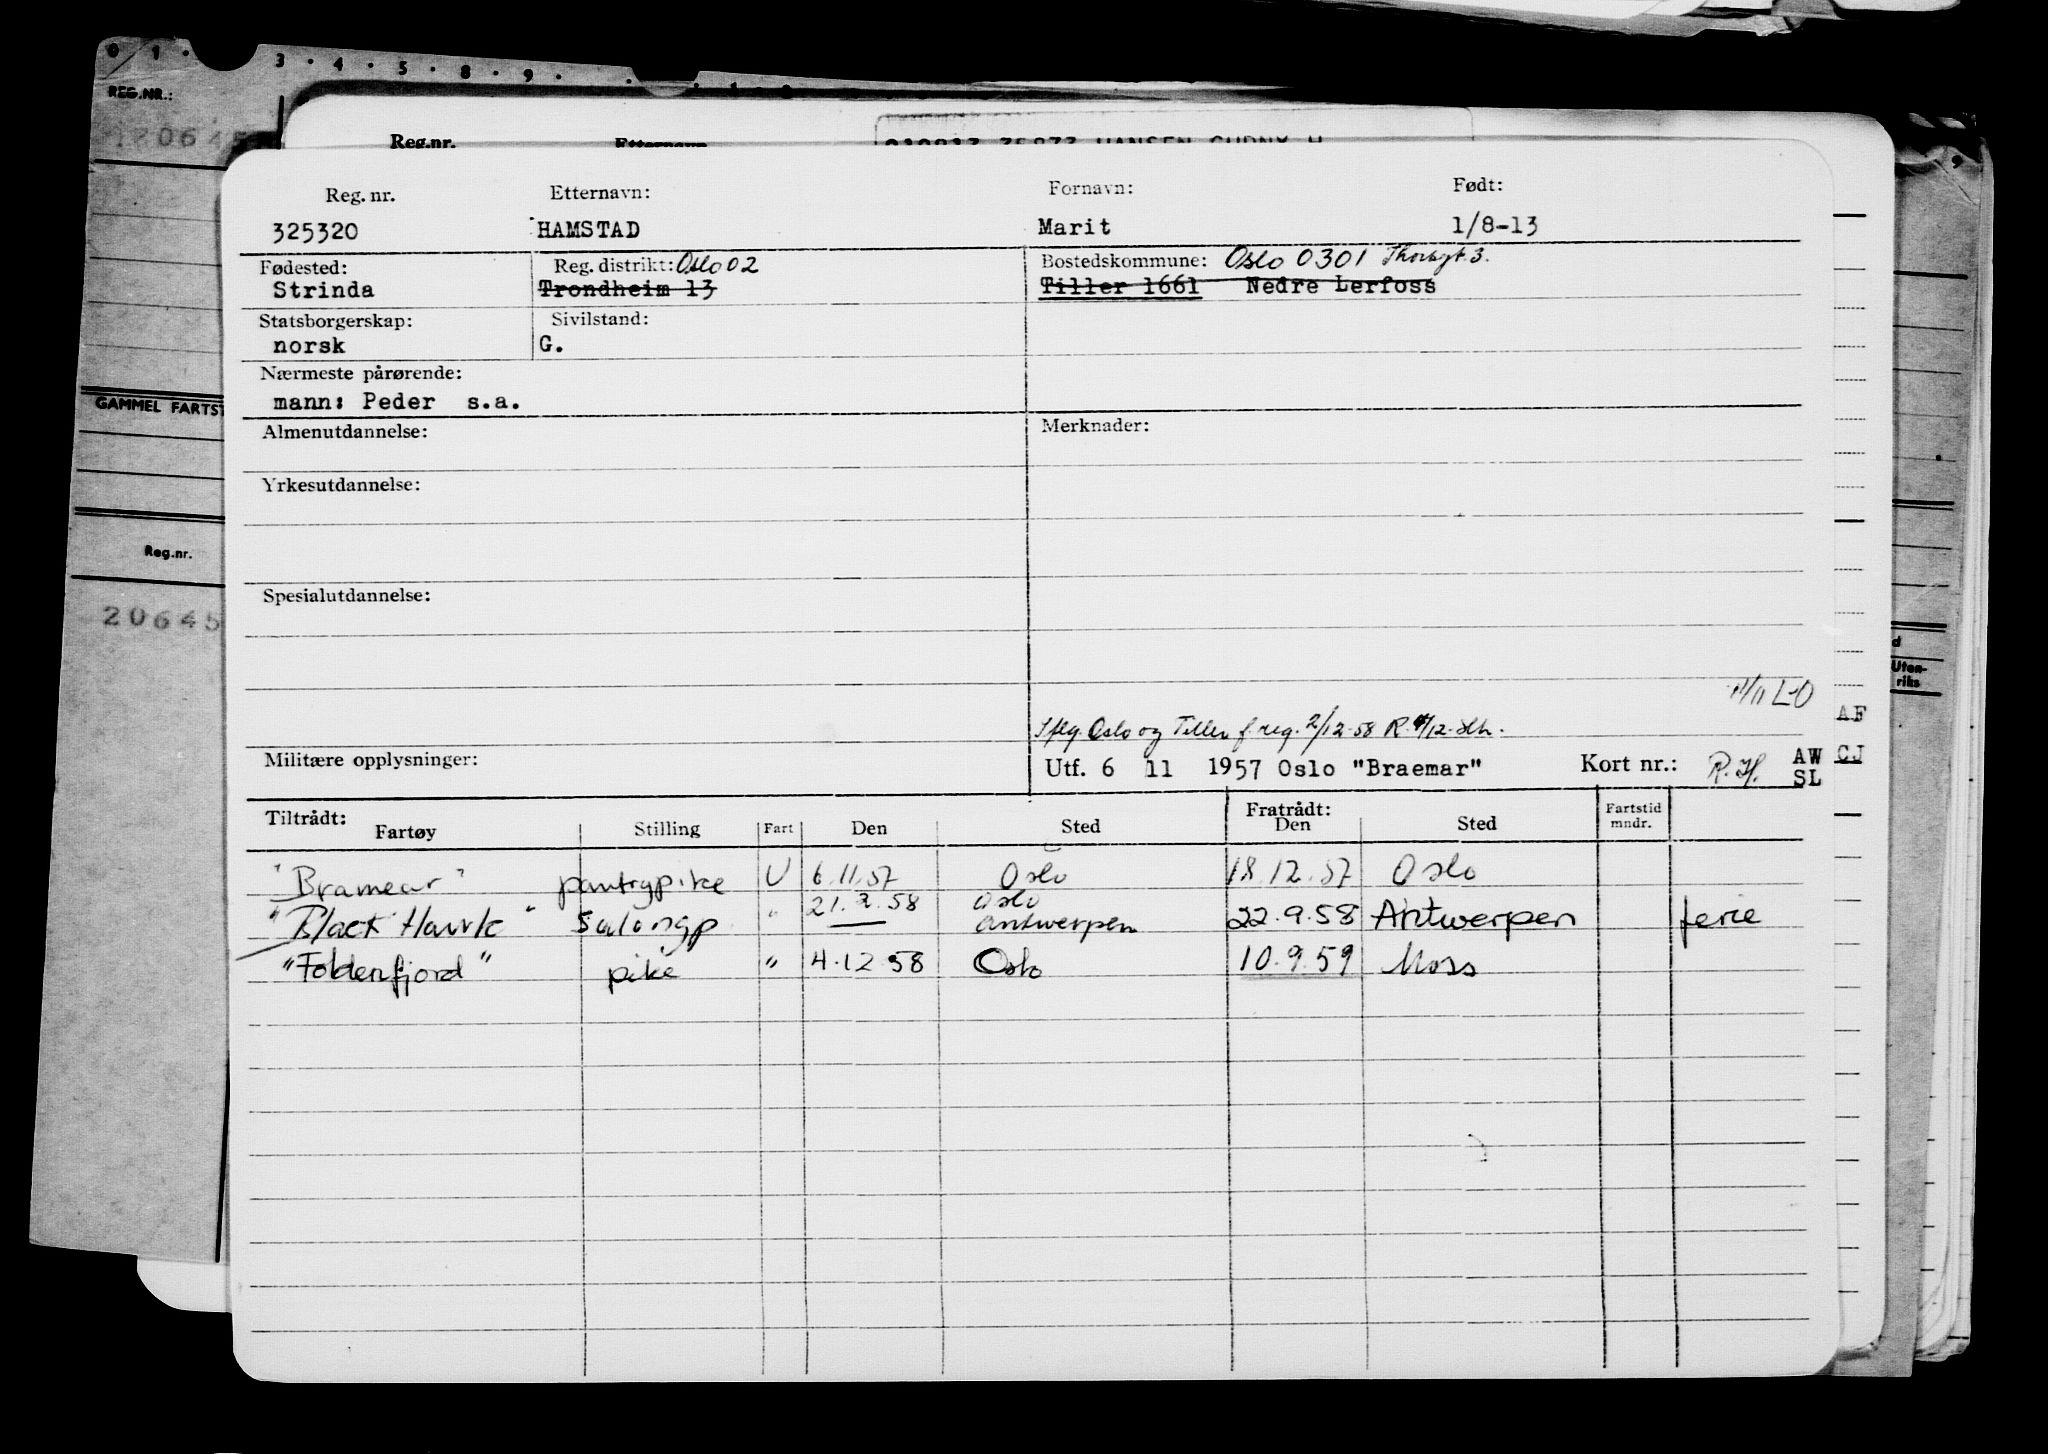 0 1 . 3 . 4 . 5 . 8 . 9 .
REG.NR.:
20645
Reg.nr. Etternavn
210813 35873 HANSEN GUDNY H
GAMMEL FARTST
Reg.nr.
20645
Reg. nr. Etternavn: Fornavn: Født:
325320 HAMSTAD Marit 1/8-13
Fødested: Reg. distrikt: Oslo 02 Bostedskommune: Oslo 0301
Strinda Trondheim 13 Tiller 1661 Nedre Lerfoss
Statsborgerskap: Sivilstand:
norsk G.
Nærmeste pårørende:
mann: Peder s.a.
Almenutdannelse: Merknader:
Yrkesutdannelse:
Spesialutdannelse:
Uten-
riks
L-O
AF
Oslo og Tiller f reg. 2/12-58
Militære opplysninger: Utf. 6 11 1957 Oslo "Braemar" Kort nr.: AW CJ
SL
Tiltrådt: Fratrådt: Fartstid
Fartøy Stilling Fart Den Sted Den Sted mndr.
"Bramear" pantrypike U 6.11.57 Oslo 18.12.57 Oslo
"Black Hawk" salongp " 21.2.58 Oslo 22.9.58 Antwerpen ferie
— Antwerpen
"Foldenfjord" pike " 4.12.58 Oslo 10.9.59 Moss